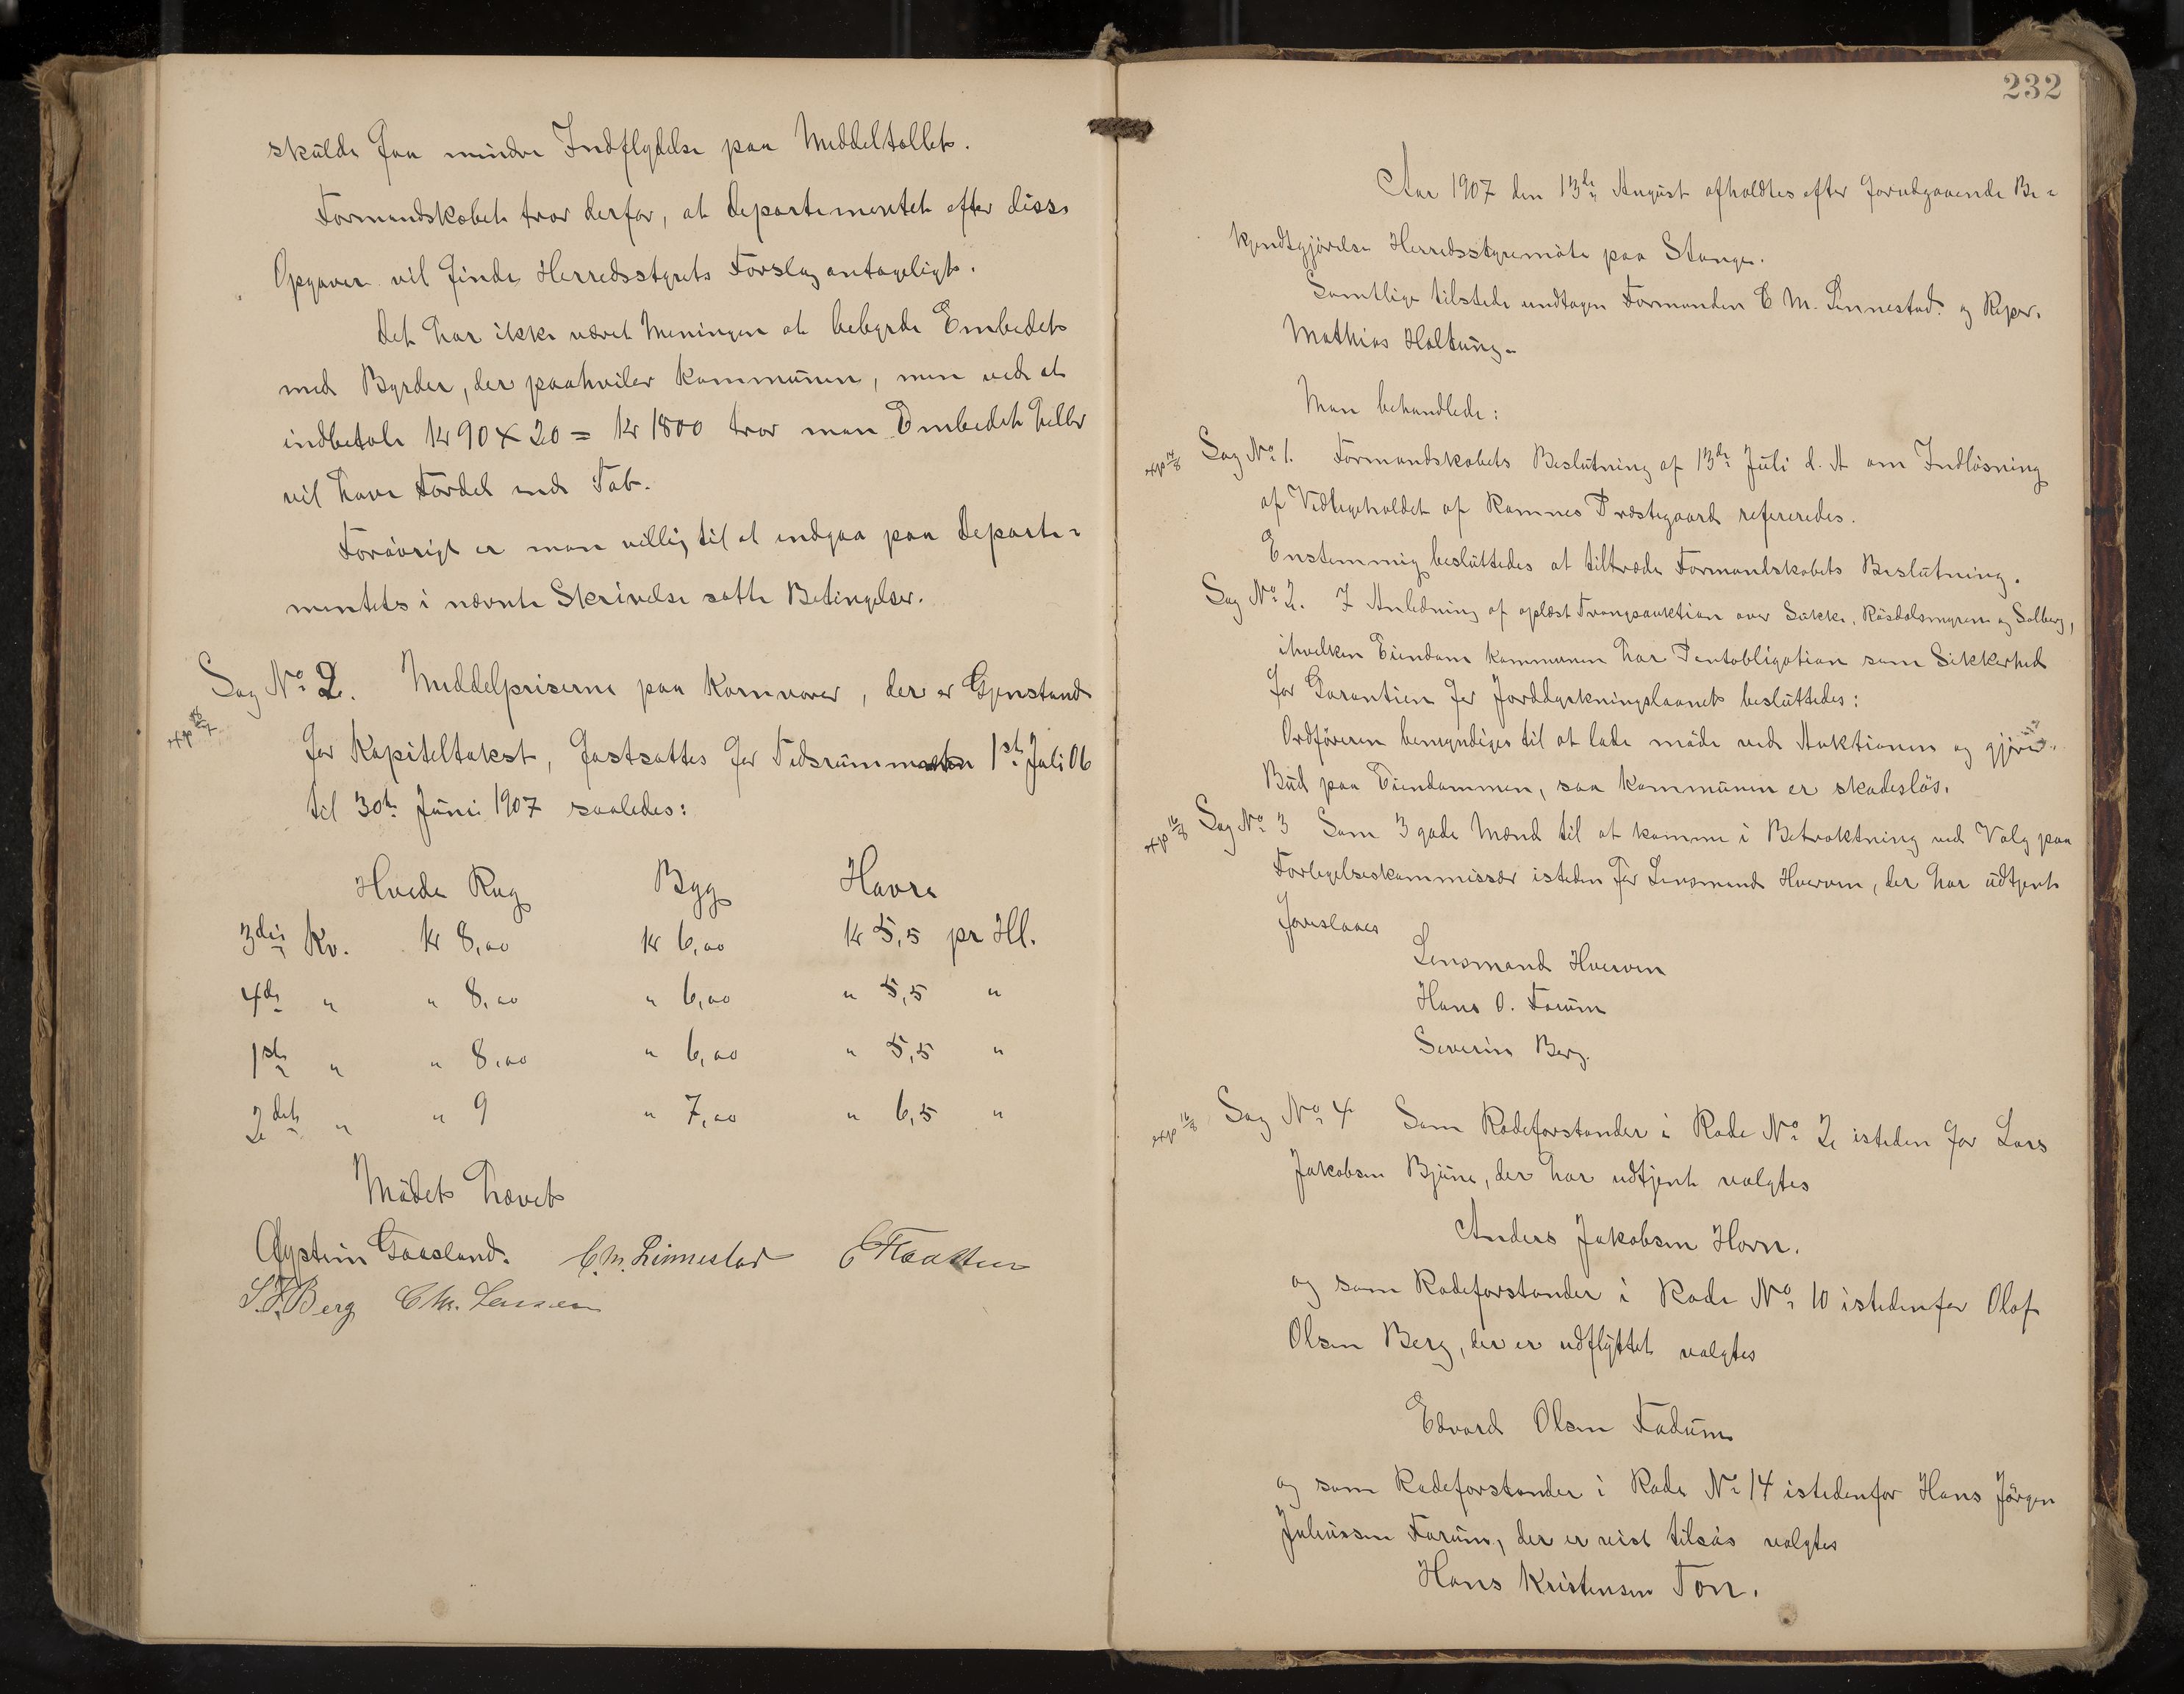 skulde faa mindre Indflydelse paa Middeltallet.
Formandskabet tror derfor, at departementet efter disse
Opgaver vil finde Herredsstyrets Forslag antageligt.
det har ikke været Meningen at bebyrde Embedet
med Byrder, der paahviler Kommunen, men ved at
indbetale Kr 90 X 20 = Kr 1800 tror man Embedet heller
vil have Fordel end Tab.
Forøvrigt er man villig til at indgaa paa departe=
mentets i nævnte Skrivelse satte Betingelser.
Sag No 2. Middelpriserne paa Kornvarer, der er Gjenstand
exp
for Kapiteltakst, fastsattes for Tidsrummet 1ste Juli 06
til 30te Juni 1907 saaledes:
Hvede Rug Byg Havre
3die Kv. Kr 8,00 Kr 6,00 Kr 5,5 pr Hl.
4de " " 8,00 " 6,00 " 5,5 "
1ste " " 8,00 " 6,00 " 5,5 "
2det " " 9 " 7,00 " 6,5 "
Mødet hævet
Øystein Gaasland. C. M. Linnestad C Flaatten
S. F. Berg Chr. Lensen
232
Aar 1907 den 13de August afholdtes efter forudgaaende Be=
kjendtgjørelse Herredsstyremøte paa Stange.
Samtlige tilstede undtagen Formanden C M. Linnestad og Repr.
Mathias Holtung.
Man behandlede:
exp 14/8 Sag No 1. Formandskabets Beslutning af 13de Juli d. A om Indløsning
af Vedligeholdet af Ramnes Præstegaard refereredes.
Enstemmig besluttedes at tiltræde Formandskabets Beslutning.
Sag No 2. I Anledning af oplæst Tvangsauktion over Sukke, Røsdalsmyren og Solberg,
ihvilken Eiendom Kommunen har Pantobligation som Sikkerhed
for Garantien for Jorddyrkningslaanet besluttedes:
Ordføreren bemyndiges til at lade møde ved Auktionen og gjøre
Bud paa Eiendommen, saa Kommunen er skadesløs.
exp 16/8 Sag No 3 Som 3 gode Mænd til at komme i Betraktning ved Valg paa
Forligelseskommissær isteden for Lensmand Hverven, der har udtjent
foreslaaes
Lensmand Hverven
Hans O. Farum
Severin Berg.
exp 16/8 Sag No 4 Som Rodeforstander i Rode No 2 isteden for Lars
Jakobsen Bjune, der har udtjent valgtes
Anders Jakobsen Horn.
og som Rodeforstander i Rode No 10 istedenfor Olaf
Olsen Berg, der er udflyttet valgtes
Edvard Olsen Fadum
og som Rodeforstander i Rode No 14 istedenfor Hans Jørgen
Juliussen Farum, der er reist tilsøs valgtes
Hans Kristensen Ton.